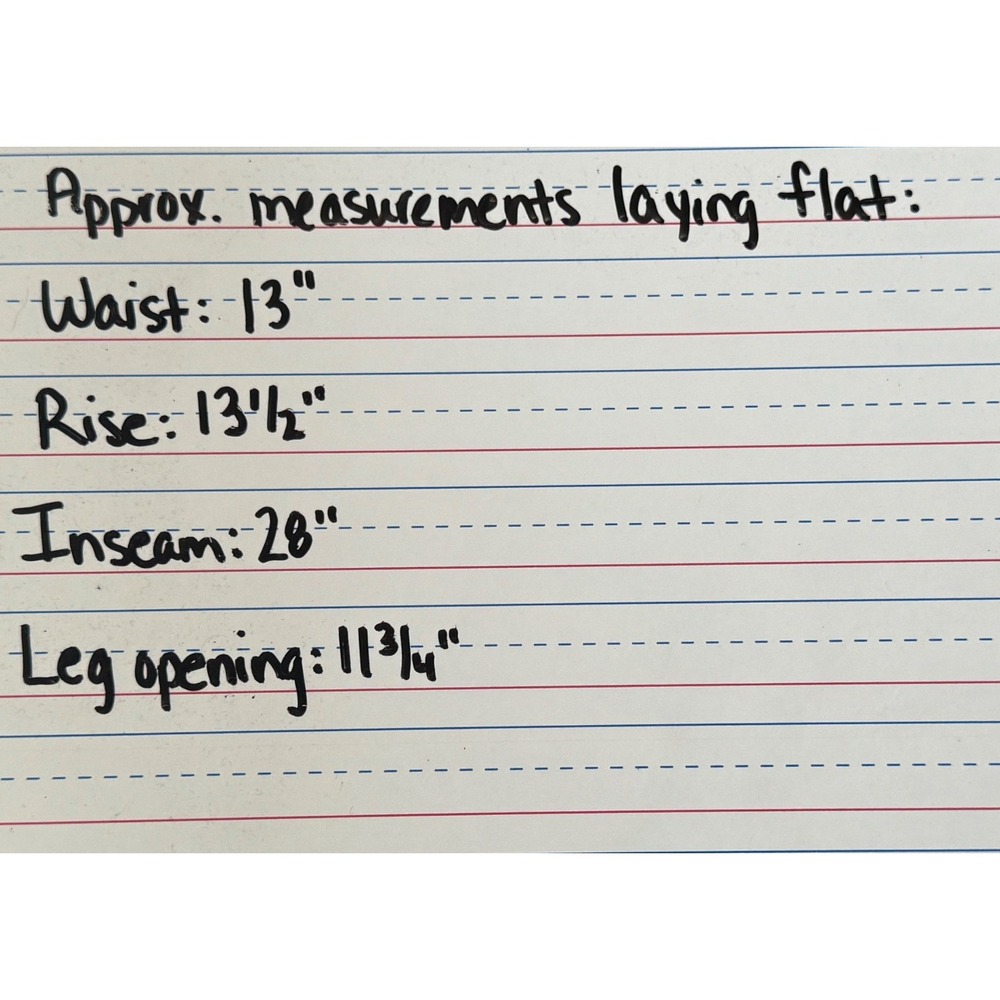 Approx. measurements laying flat:
Waist: 13"
Rise: 13 1/2"
Inseam: 28"
Leg opening: 11 3/4"